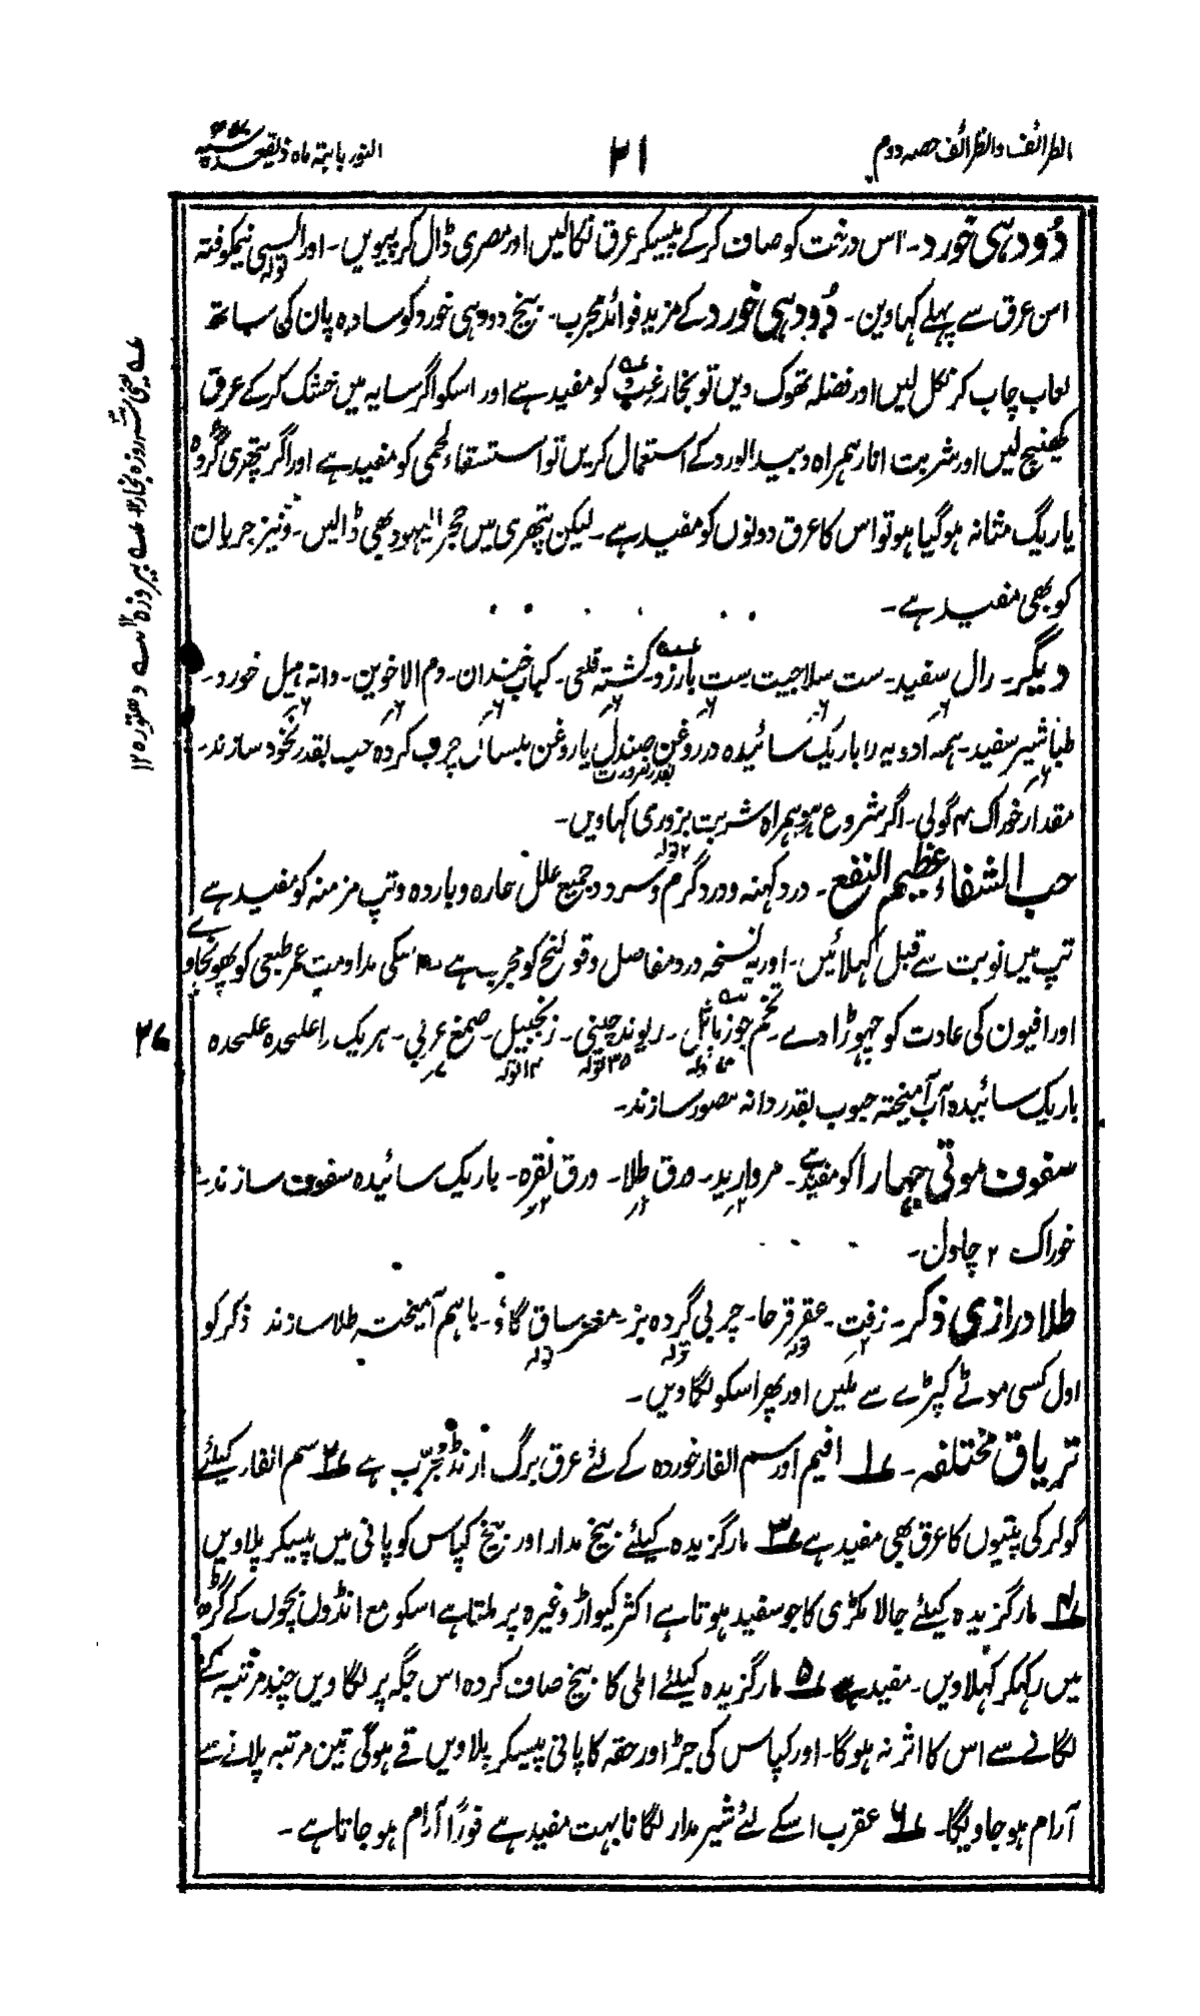 الطرائف والظرائف حصہ دوم
۲۱
النور بابتہ ماہ ذیقعدہ
دُودہی خورد۔ اس درخت کو صاف کرکے پیسکر عرق نکالیں اور مصری ڈال کر پیویں۔ اور السی نیمکوفتہ
تولہ
اس عرق سے پہلے کہاوین۔ دُودہی خورد کے مزید فوائد مجرب۔ بیخ دودہی خورد کو سادہ پان کی ساتھ
لعاب چاب کر نگل لیں اور فضلہ تھوک دیں تو بخار غب کو مفید ہے اور اسکو اگر سایہ میں خشک کرکے عرق
کھینچ لیں اور شربت انار ہمراہ دبید الورد کے استعمال کریں تو استسقاء لحمی کو مفید ہے اور اگر پتھری گردہ
یا ریگ مثانہ ہوگیا ہو تو اس کا عرق دونوں کو مفید ہے۔ لیکن پتھری میں حجر الیہود بھی ڈالیں۔ ونیز جریان
کو بھی مفید ہے۔
دیگر۔ رال سفید۔ ست سلاجیت ست بارزد۔ کشتہ قلعی۔ کباب خنداں۔ دم الاخوین۔ دانہ ہیل خورد۔
طباشیر سفید۔ ہمہ ادویہ را باریک سائیدہ در روغن صندل یا روغن بلسان چرب کردہ حب بقدر نخود سازند۔
بقدر ضرورت
مقدار خوراک ۴ گولی۔ اگر شروع ہو ہمراہ شربت بزوری کہاویں۔
۲ تولہ
حب الشفاء عظیم النفع۔ درد کہنہ و درد گرم و سرد و جمیع علل حارہ و باردہ و تپ مزمنہ کو مفید ہے
تپ میں نوبت سے قبل کہلائیں۔ اور یہ نسخہ درد مفاصل و قولنج کو مجرب ہے اسکی مداومت عمر طبعی کو پھونچاوے
اور افیون کی عادت کو چہوڑا دے۔ تخم جوز ماثل۔ ریوند چینی۔ زنجبیل۔ صمغ عربی۔ ہریک را علیحدہ علیحدہ
باریک سائیدہ آب آمیختہ حبوب بقدر دانہ مسور سازند۔
سفوف موتی جہارا کو مفید ہے۔ مروارید۔ ورق طلا۔ ورق نقرہ۔ باریک سائیدہ سفوف سازند۔
خوراک ۲ چاول۔
طلا درازی ذکر۔ زفت۔ عقرقرحا۔ چربی گردہ بز۔ مغز ساق گاؤ۔ باہم آمیختہ طلا سازند ذکر کو
تولہ تولہ تولہ
اول کسی موٹے کپڑے سے ملیں اور پھر اسکو لگاویں۔
تریاق مختلفہ۔ ۱ افیم اور سم الفار خوردہ کے لئے عرق برگ ارنڈ مجرّب ہے ۲ سم الفار کیلئے
گولر کی پتیوں کا عرق بھی مفید ہے ۳ مارگزیدہ کیلئے بیخ مدار اور بیخ کپاس کو پانی میں پیسکر پلاویں
۴ مارگزیدہ کیلئے جالا مکڑی کا جو سفید ہوتا ہے اکثر کیواڑ وغیرہ پر ملتا ہے اسکو مع انڈوں بچوں کے گڑ
میں رکہکر کہلاویں۔ مفید ہے ۵ مارگزیدہ کیلئے املی کا بیخ صاف کردہ اس جگہ پر لگاویں چند مرتبہ کے
لگانے سے اس کا اثر نہ ہوگا۔ اور کپاس کی جڑ اور حقہ کا پانی پیسکر پلاویں قے ہوگی تین مرتبہ پلانے سے
آرام ہوجاویگا۔ ۶ عقرب اسکے لئے شیر مدار لگانا بہت مفید ہے فورًا آرام ہوجاتا ہے۔